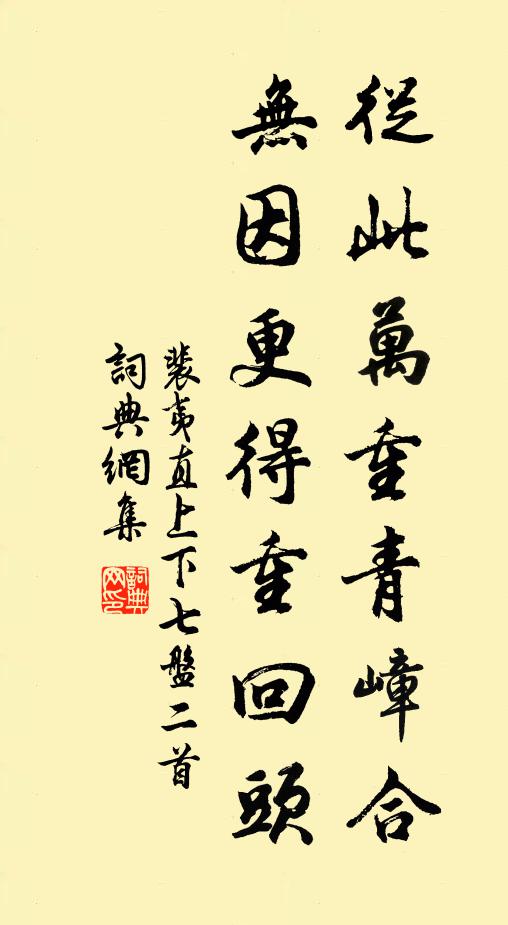 從此萬重青嶂合
無因更得重回頭
裴夷直上下七盤二首
詞典網集
詞典
网印